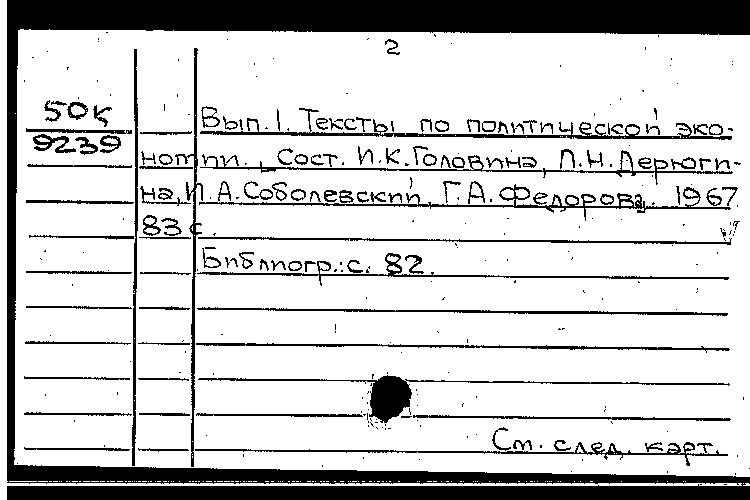 2
50к
9239
Вып. 1. Тексты по политической эко-
номии., Сост. И.К.Головина, Л.Н.Дерюги-
на, И.А.Соболевский, Г.А.Федорова. 1967
83 с.
Библиогр.: с. 82.
См. след. карт.